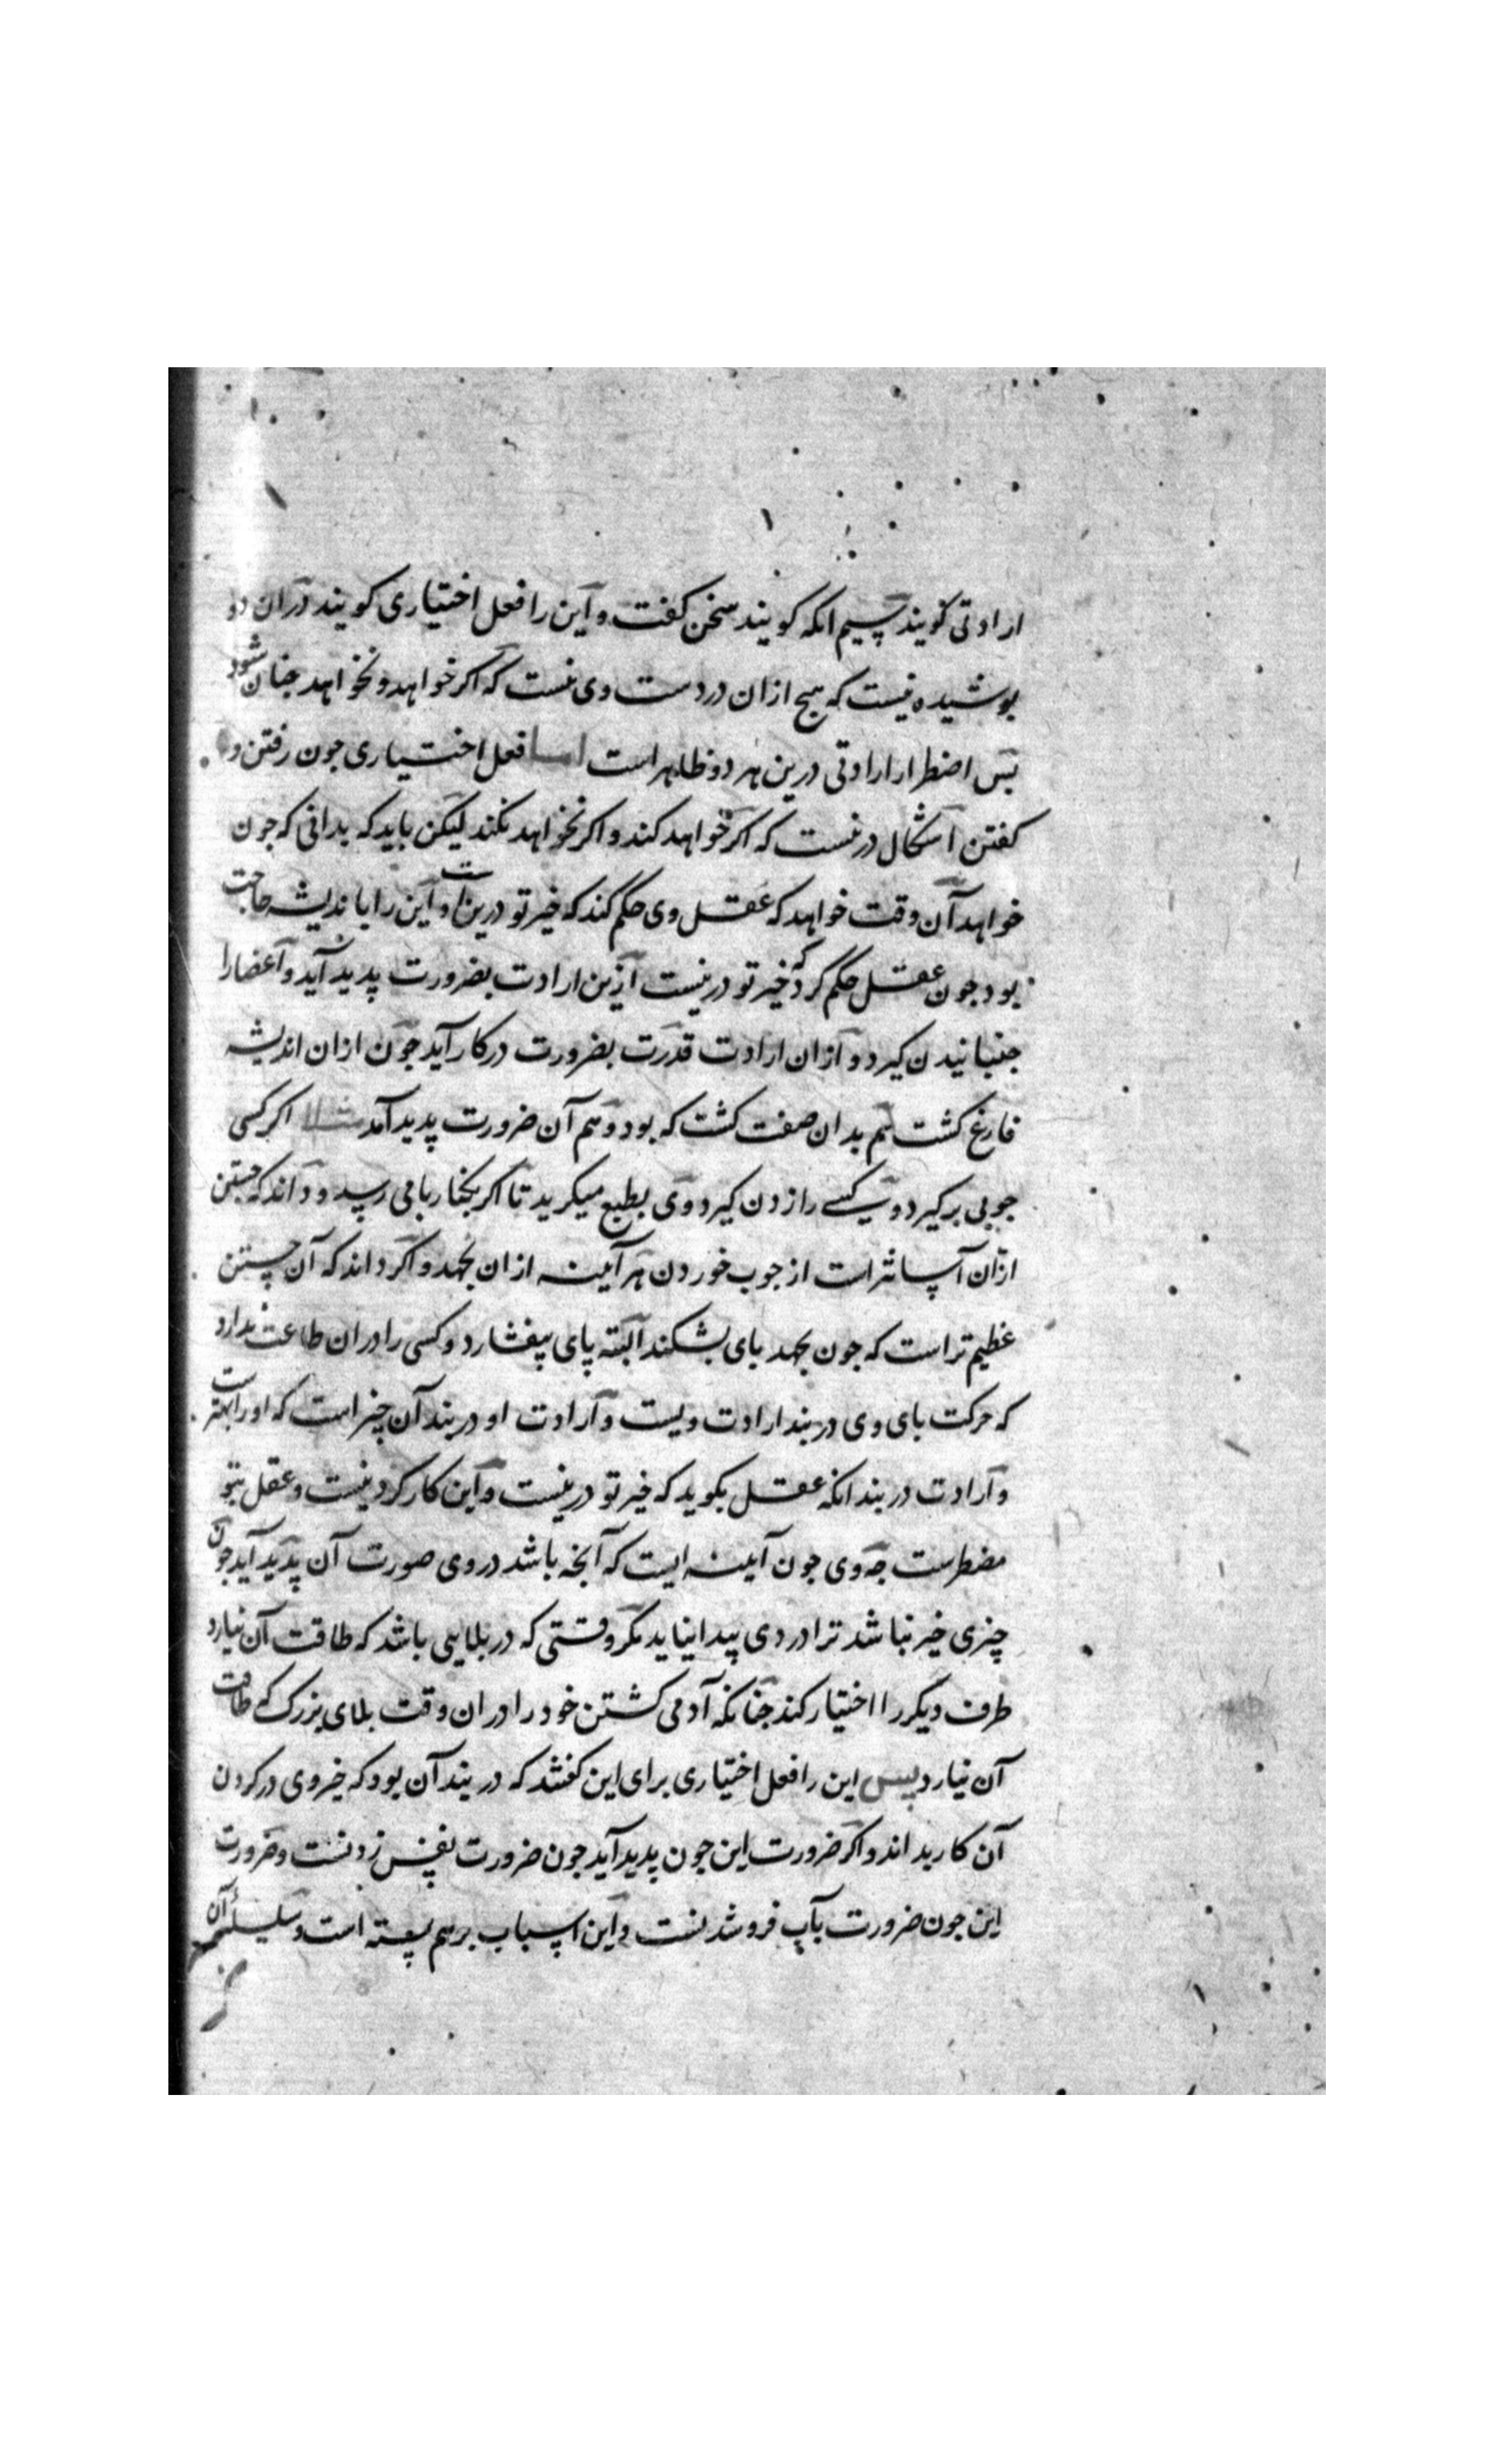 ارادتی کویند سیم انکه کویند سخن کفت و این را فعل اختیاری کویند در ان دو
بوشیده نیست که هیج ازان در دست وی نیست که اکر خواهد و نخواهد جنان شود
بس اضطرار ارادتی درین هر دو ظاهر است اما فعل اختیاری جون رفتن و
کفتن اشکال درنست که اکر خواهد کند و اکر نخواهد نکند لیکن باید که بدانی که جون
خواهد آن وقت خواهد که عقل وی حکم کند که خیر تو درین است و این را باندیشه حاجت
بود جون عقل حکم کرد که خیر تو درینست ازین ارادت بضرورت پدید آید و اعضا را
جنبانیدن کیرد و ازان ارادت قدرت بضرورت در کار آید جون ازان اندیشه
فارغ کشت هم بدان صفت کشت که بود و هم آن ضرورت پدید آمد مثلا اکر کسی
جوبی برکیرد و کسی را زدن کیرد و وی بطبع میکریزد تا اکر بکنار بامی رسد و داند که جستن
ازان آسانتر است از جوب خوردن هر آینه ازان بجهد و اکر داند که آن جستن
عظیم تر است که جون بجهد بای بشکند البته پای بیفشارد و کسی را دران طاعت ندارد
که حرکت بای وی در بند ارادت ویست و ارادت او در بند آن چیز است که او را بهتر است
و ارادت در بند انکه عقل بکوید که خیر تو درینست و این کار کردنیست و عقل بتو
مضطرست جه وی جون آینه ایست که آنجه باشد در وی صورت آن پدید آید جون
چیزی خیر نباشد ترا در وی پیدا نیاید مکر وقتی که در بلایی باشد که طاقت آن نیارد
طرف دیکر را اختیار کند جنانکه آدمی کشتن خود را دران وقت بلای بزرک که طاقت
آن نیارد پس این را فعل اختیاری برای این کفتند که در بند آن بود که خیر وی در کردن
آن کار بداند و اکر ضرورت این جون پدید آید جون ضرورت نفس زدنست و ضرورت
این جون ضرورت بآب فرو شدنست و این اسباب برهم بسته است و سلسله آن